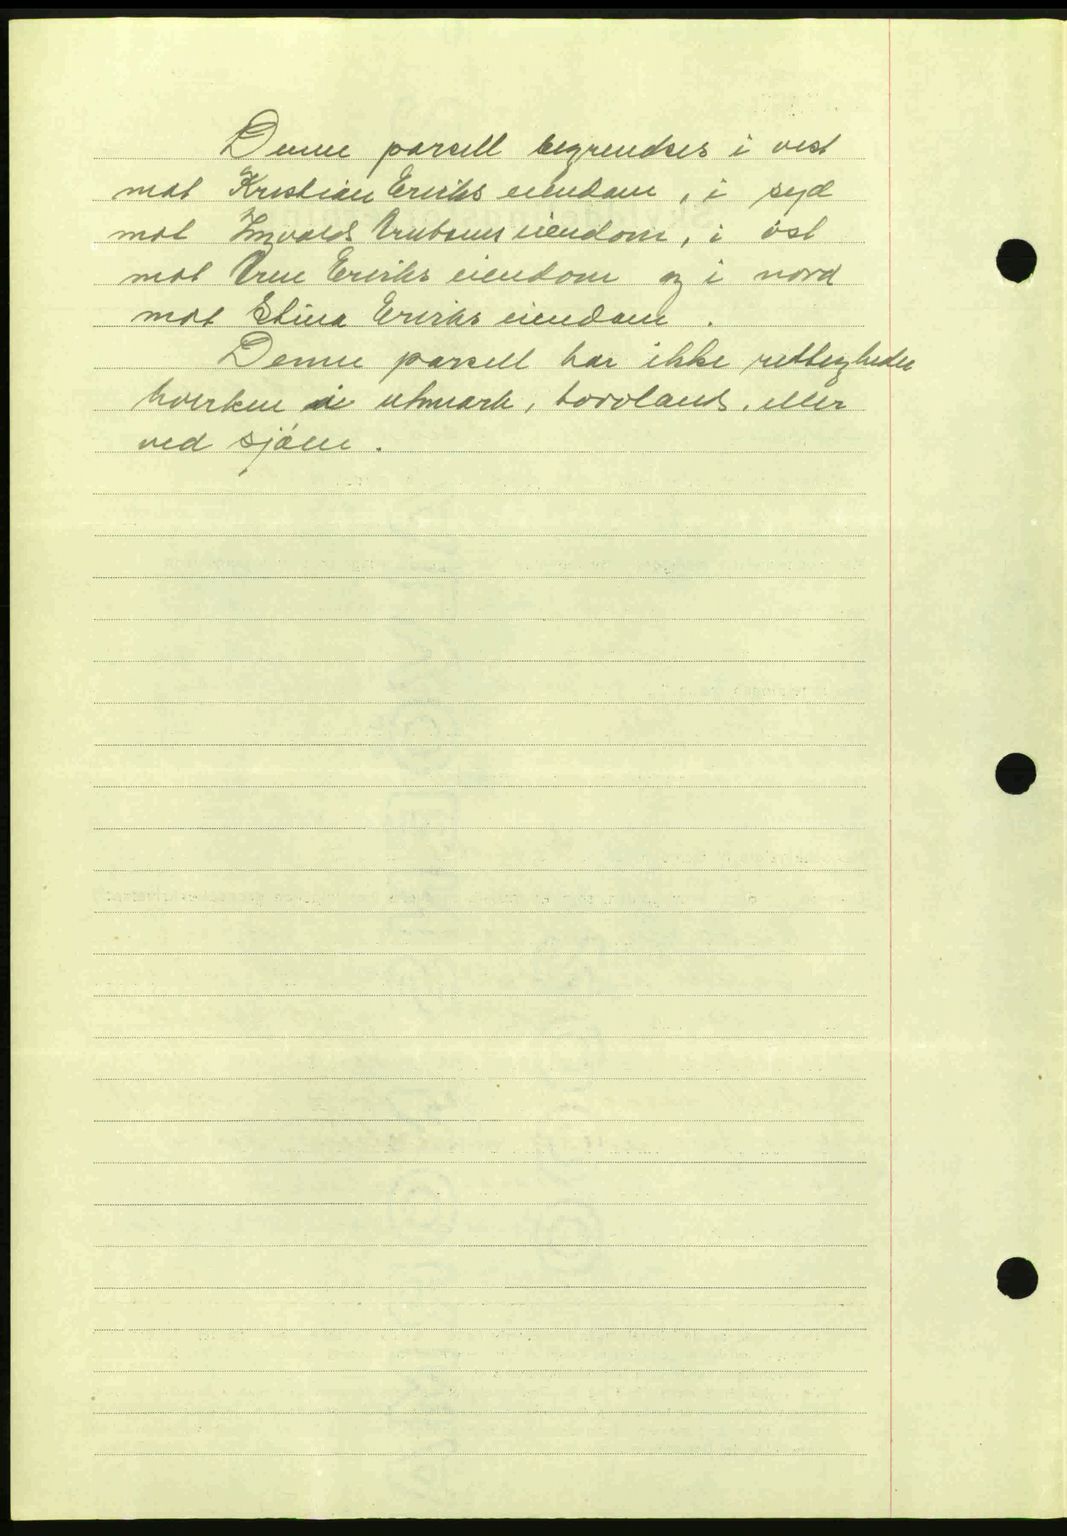 Denne parsell begrendses i vest
mot Kristian Eriks eiendom, i syd
mot Ingvald Knutsens eiendom, i øst
mot Arne Eriks eiendom og i nord
mot Stina Eriks eiendom.
Denne parsell har ikke rettigheder
hverken i utmark, torvland, eller
ved sjøen.